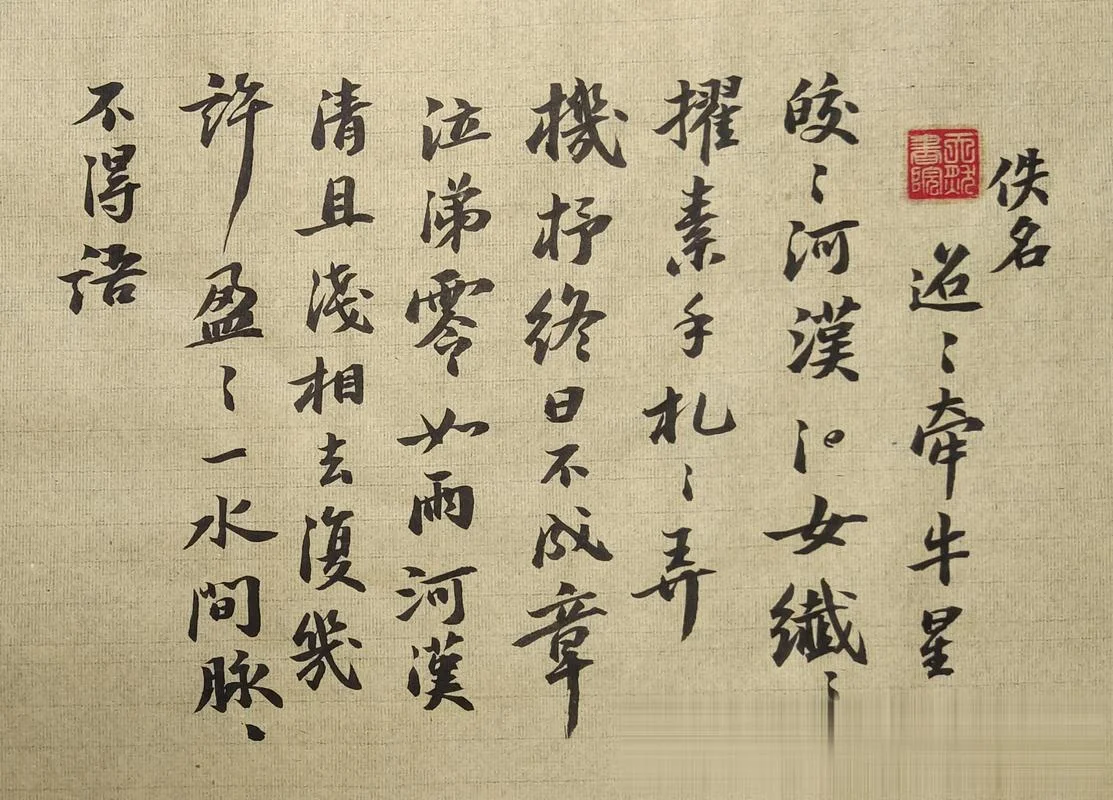 佚名
迢〻牽牛星
皎〻河漢女纖〻
擢素手札〻弄
機杼終日不成章
泣涕零如雨河漢
清且淺相去復幾
許盈〻一水間脉〻
不得語
書院